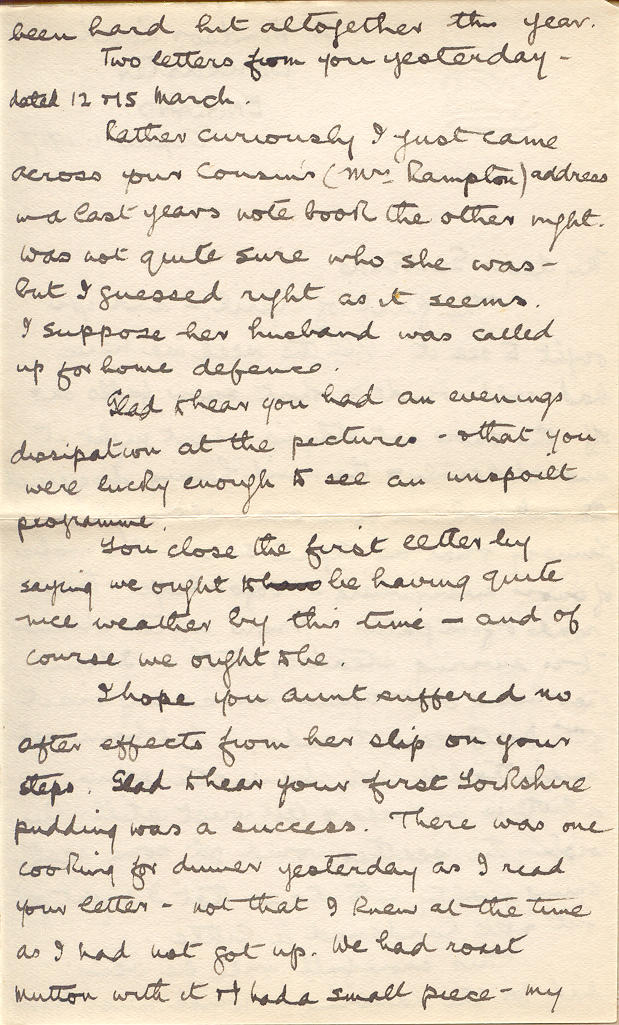 been hard hit altogether this year.
Two letters from you yesterday -
dated 12 & 15 March.
Rather curiously I just came
across your Cousin's (Mrs. Rampton) address
in a last years note book the other night.
Was not quite sure who she was -
but I guessed right as it seems.
I suppose her husband was called
up for home defence.
Glad to hear you had an evenings
dissipation at the pectures - & that you
were lucky enough to see an unspoilt
programme.
You close the first letter by
saying we ought to be having quite
nice weather by this time - and of
course we ought to be.
I hope you aunt suffered no
after effects from her slip on your
steps. Glad to hear your first Yorkshire
pudding was a success. There was one
cooking for dinner yesterday as I read
your letter - not that I knew at the time
as I had not got up. We had roast
mutton with it & I had a small piece - my